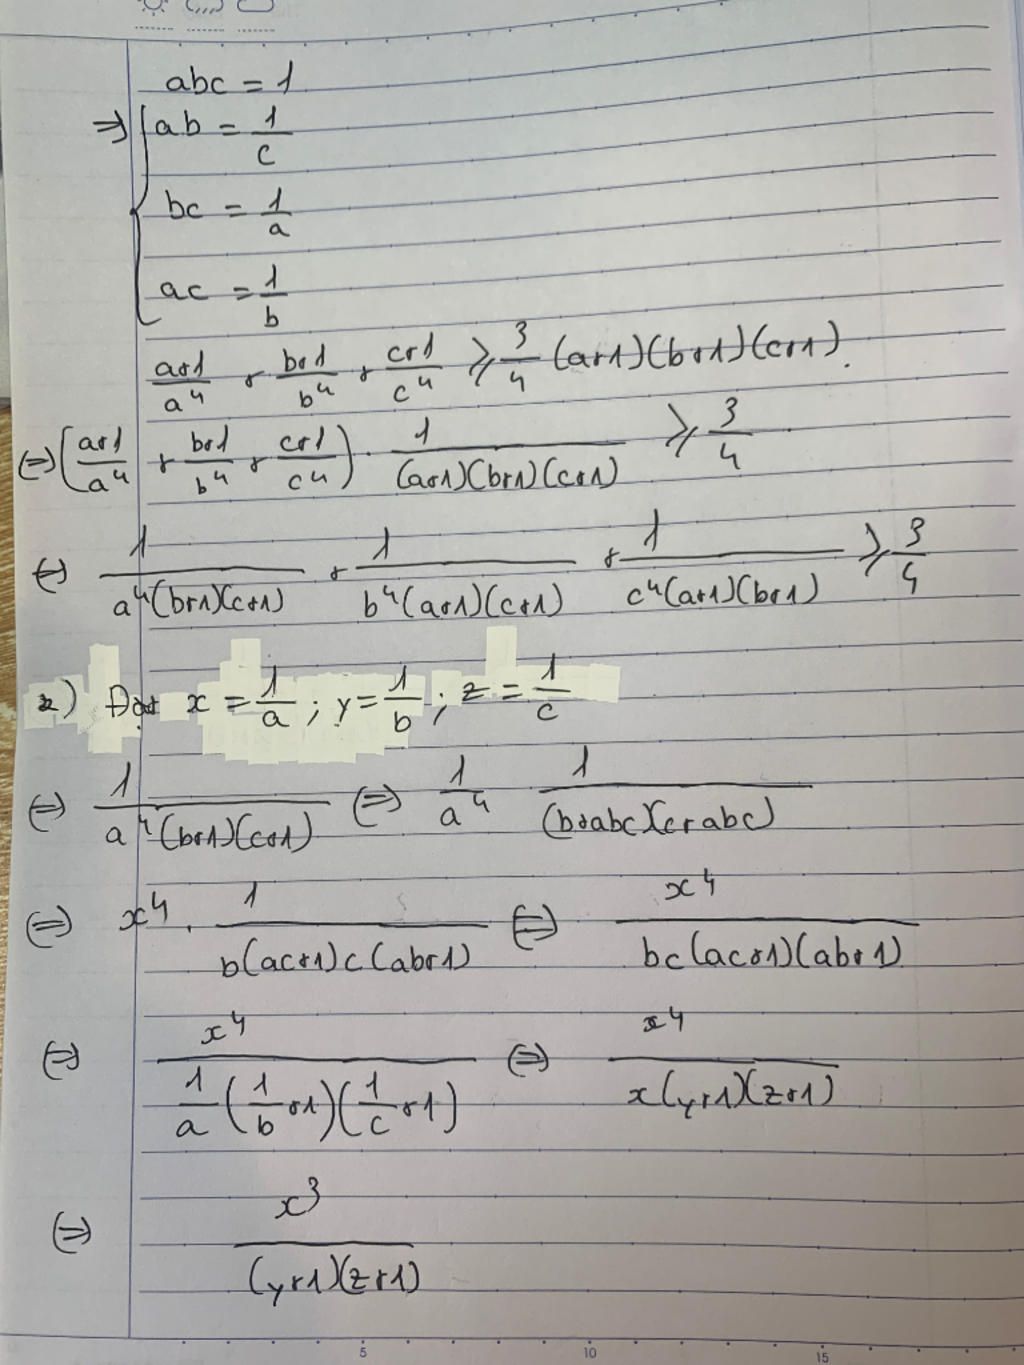 abc = 1
⇒ { ab = 1/c
bc = 1/a
ac = 1/b
(a+1)/a⁴ + (b+1)/b⁴ + (c+1)/c⁴ ⩾ 3/4 (a+1)(b+1)(c+1).
⇔ ((a+1)/a⁴ + (b+1)/b⁴ + (c+1)/c⁴) · 1/((a+1)(b+1)(c+1)) ⩾ 3/4
⇔ 1/(a⁴(b+1)(c+1)) + 1/(b⁴(a+1)(c+1)) + 1/(c⁴(a+1)(b+1)) ⩾ 3/4
2) Đặt x = 1/a ; y = 1/b ; z = 1/c
⇔ 1/(a⁴(b+1)(c+1)) ⇔ 1/a⁴ 1/((b+abc)(c+abc))
⇔ x⁴ . 1/(b(ac+1)c(ab+1)) ⇔ x⁴/(bc(ac+1)(ab+1))
⇔ x⁴/(1/a (1/b +1)(1/c +1)) ⇔ x⁴/(x(y+1)(z+1))
⇔ x³/((y+1)(z+1))
5 10 15